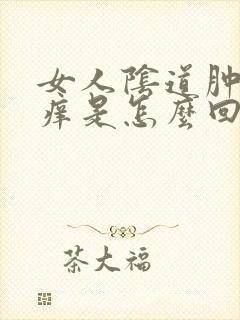 女人陰道肿
痒是怎麼回
茶大福